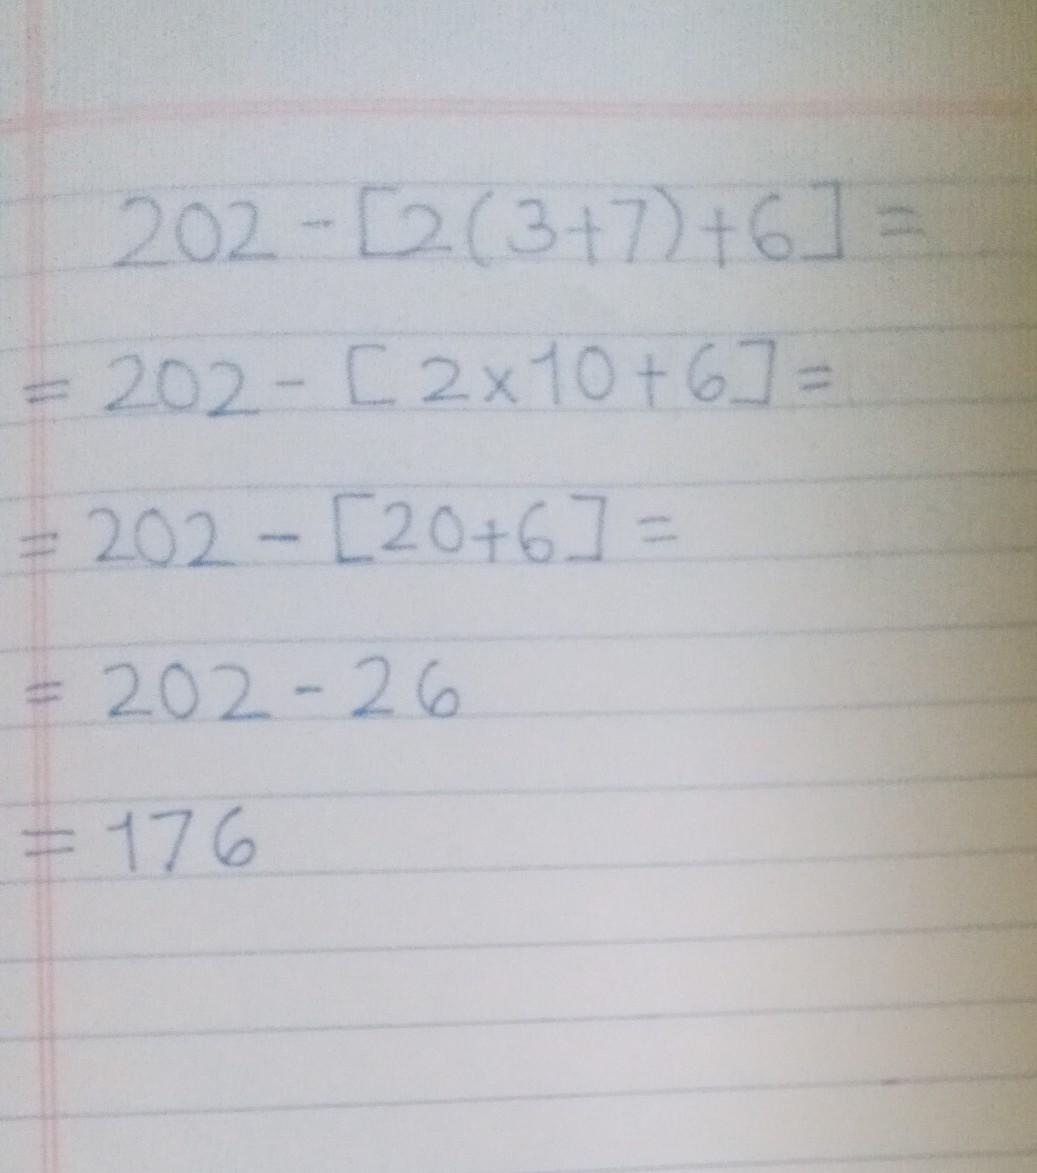 202 - [2(3+7)+6] =
= 202 - [2×10+6] =
= 202 - [20+6] =
= 202 - 26
= 176